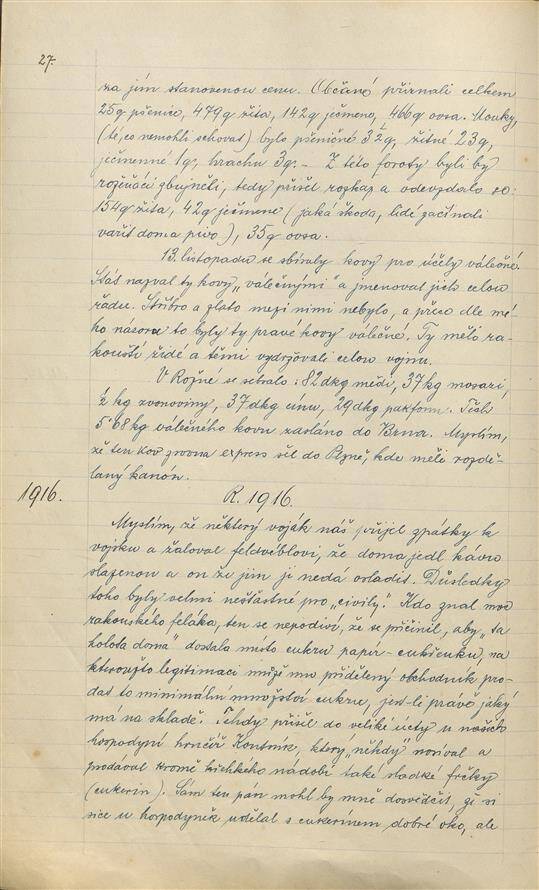 27.
za jím stanovenou cenu. Občané přiznali celkem
25q pšenice, 479q žita, 142q ječmene, 466q ovsa. Mouky,
(té, co nemohli schovat) bylo pšeničné 3½q, žitné 23q,
ječmenné 1q, hrachu 3q. – Z této foroty byli by
rozpučí zbujněli, tedy přišel rozkaz a odevzdalo se:
154q žita, 42q ječmene (jaká škoda, lidé začínali
vařit doma pivo), 35q ovsa.
13. listopadu se sbíraly kovy pro účely válečné.
Stát nazval ty kovy „válečnými" a jmenoval jich celou
řadu. Stříbro a zlato mezi nimi nebylo, a přece dle mé-
ho názoru to byly ty pravé kovy válečné. Ty měli ra-
kouští židé a těmi vydržovali celou vojnu.
V Rožné se sebralo: 82dkg mědi, 37kg mosazi,
½ kg zvonoviny, 37dkg cínu, 29dkg pakfonu. Těch
5·68kg válečného kovu zasláno do Brna. Myslím,
že ten kov zrovna express šel do Plzně, kde měli rozdě-
laný kanón.
1916.
R. 1916.
Myslím, že některý voják náš přijel zpátky k
vojsku a žaloval feldvéblovi, že doma jedl kávu
slazenou a on že jim ji nedá osladit. Důsledky
toho byly velmi nešťastné pro „civily". Kdo znal moc
rakouského feláka, ten se nepodiví, že se přičinil, aby „ta
holota doma" dostala místo cukru papír – cukřenku, na
kteroužto legitimaci může mu přidělený obchodník pro-
dat to minimální množství cukru, jest-li právě jaký
má na skladě. Tehdy přišel do veliké úcty u našich
hospodyní hrnčíř Koutník, který „někdy" nosíval a
prodával kromě křehkého nádobí také sladké frčky
(cukerin). Sám ten pán mohl by mně dosvědčit, že si
sice u hospodyněk udělal s cukerinem dobré oko, ale